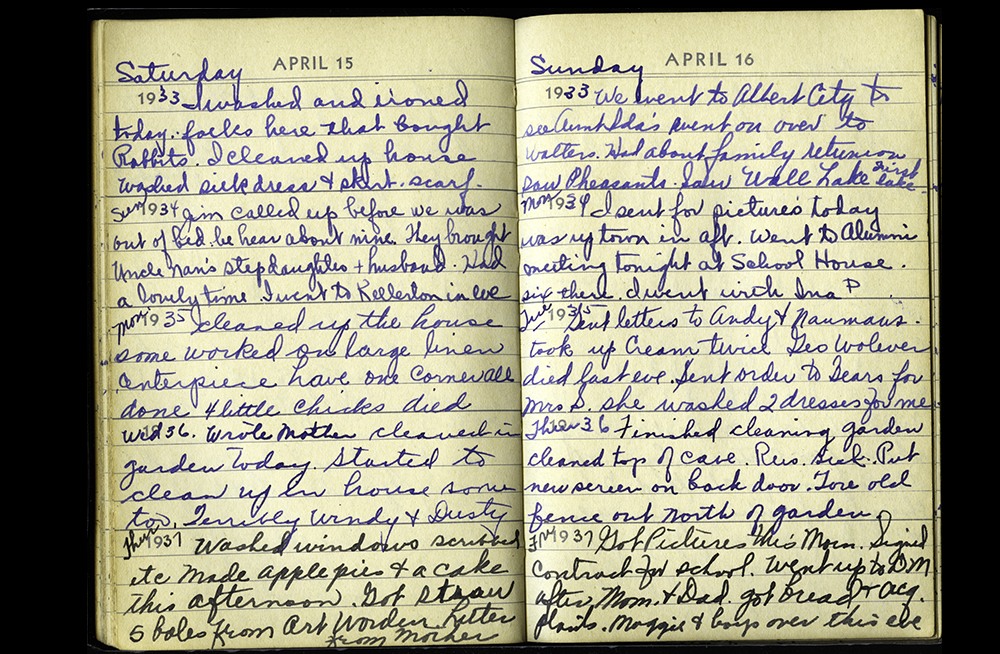 Saturday APRIL 15
1933 I washed and ironed
today. folks here that bought
Rabbits. I cleaned up house
washed silk dress & skirt. scarf.
Sun 1934 Jim called up before we was
out of bed. be hear about nine. They brought
Uncle Nan's stepdaughter + husband. Had
a lovely time. I went to Kellerton in eve
Mon 1935 cleaned up the house
some worked on large linen
centerpiece have one corner all
done 4 little chicks died
Wed 36. Wrote Mother cleaned in
garden today. Started to
clean up in house some
too. Terribly Windy & Dusty
Thur 1937 Washed windows scrubbed
etc Made apple pies & a cake
this afternoon. Got straw
5 bales from Art Worden. Letter
from Mother
Sunday APRIL 16
1933 We went to Albert City to
see Aunt Ida's went on over to
Walters. Had about family retunion
saw Pheasants. Saw Wall Lake first
lake.
Mon 1934 I sent for pictures today
was up town in aft. Went to Alumni
meeting tonight at School House.
six there. I went with Ina P
Tue 1935 Sent letters to Andy & Naumans.
took up Cream twice Geo Wolever
died last eve. Sent order to Sears for
Mrs S. she washed 2 dresses for me
Thur 36 Finished cleaning garden
cleaned top of cave. Rus. sick. Put
new screen on back door. Tore old
fence out north of garden.
Fri 1937 Got Pictures this Morn. Signed
contract for school. Went up to DM
after Mom. & Dad. got bread &
plants. Maggie & boys over this eve